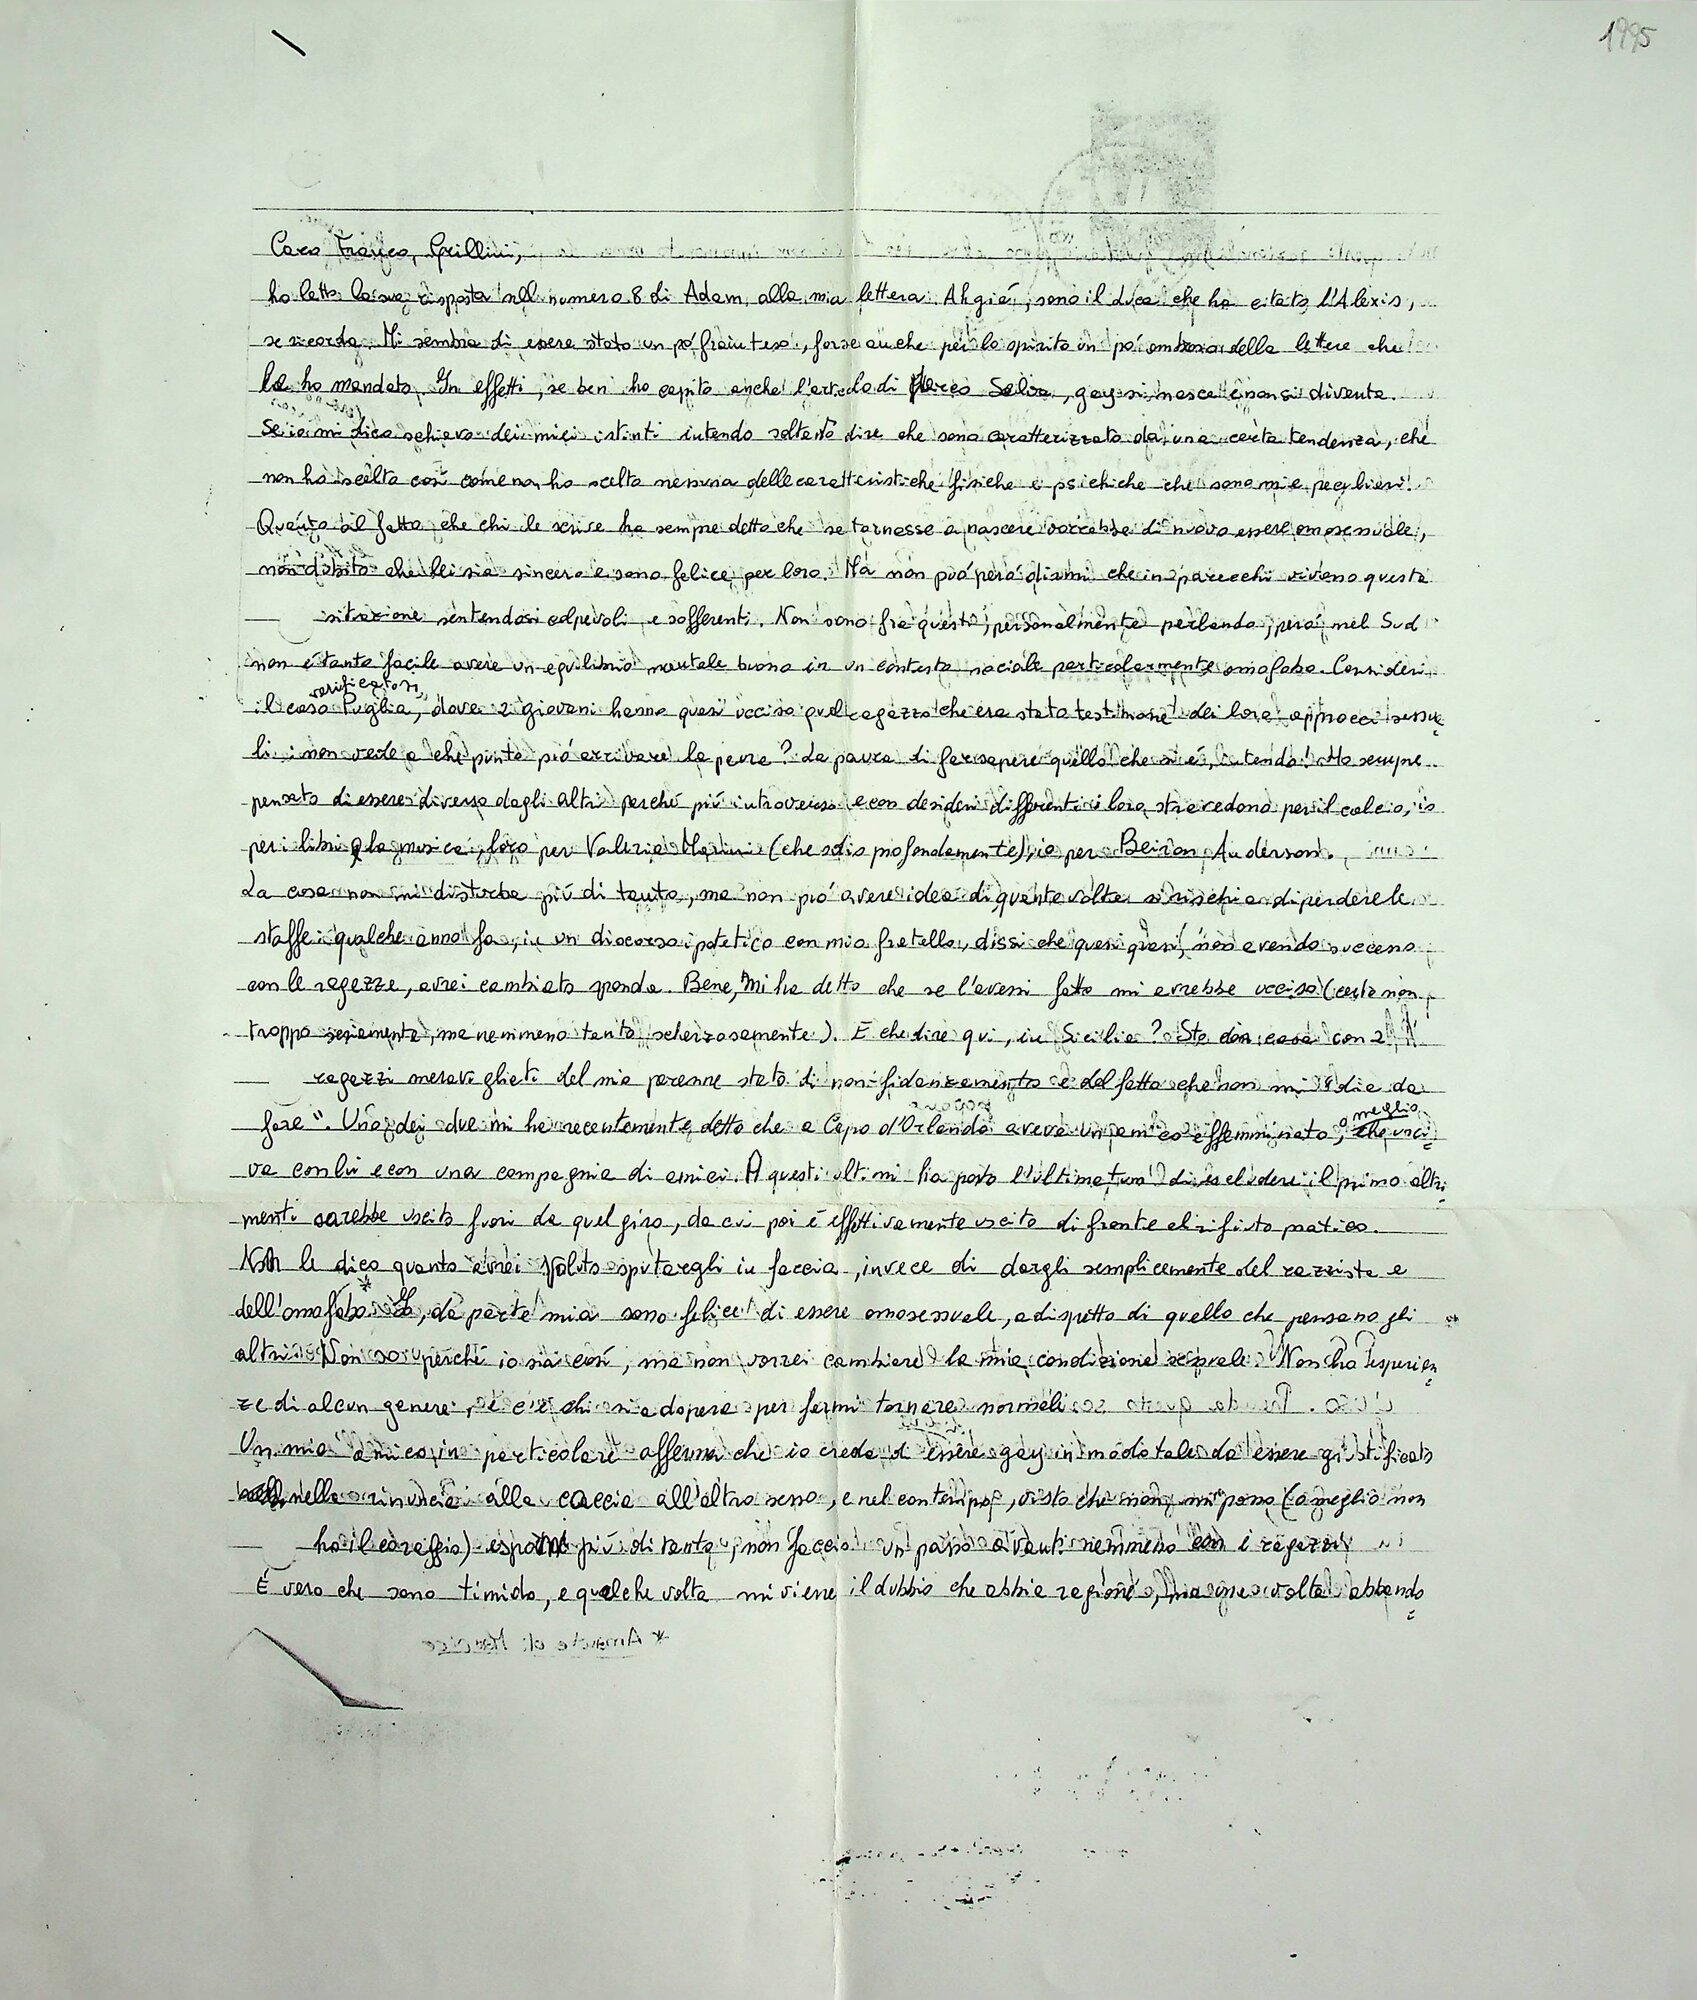 1995
Caro Franco Grillini,
ho letto la sua risposta nel numero 8 di Adam, alla mia lettera. Ah già, sono il Luca che ha citato l'Alexis,
se ricorda. Mi sembra di essere stato un pó frainteso, forse anche per lo spirito un pó ombroso della lettera che
le ho mandato. In effetti, se ben ho capito anche l'articolo di Marco Salvia, gay si nasce e non si diventa.
Se io mi dico schiavo dei miei istinti intendo soltanto dire che sono caratterizzato da una certa tendenza, che
non ho scelto così come non ho scelto nessuna delle caratteristiche fisiche e psichiche che sono mie peculiari.
Quanto al fatto che chi le scrive ha sempre detto che se tornasse a nascere vorrebbe di nuovo essere omosessuale,
non dubito che lei sia sincero e sono felice per loro. Ma non può però dirmi che in parecchi vivono questa
situazione sentendosi colpevoli e sofferenti. Non sono fra questi, personalmente parlando, però nel Sud
non è tanto facile avere un equilibrio mentale buono in un contesto sociale particolarmente omofobo. Consideri
verificatosi
il caso Puglia, dove 2 giovani hanno quasi ucciso quel ragazzo che era stato testimone dei loro approcci sessua
li: non vede a che punto può arrivare la paura? La paura di far sapere quello che si è, intendo! Ho sempre
pensato di essere diverso dagli altri perché più introverso e con desideri differenti: loro stravedono per il calcio, io
per i libri e la musica, loro per Valeria Marini (che odio profondamente), io per Beiron Anderson.
La cosa non mi disturba più di tanto, ma non può avere idea di quante volte si rischia di perdere le
staffe: qualche anno fa, in un discorso ipotetico con mio fratello, dissi che quasi quasi, non avendo successo
con le ragazze, avrei cambiato sponda. Bene, mi ha detto che se l'avessi fatto mi avrebbe ucciso (certo non
troppo seriamente, ma nemmeno tanto scherzosamente). E che dire qui, in Sicilia? Sto in casa con 2
ragazzi meravigliati del mio perenne stato di non-fidanzamento e del fatto che non mi "dia da
fare". Uno dei due mi ha recentemente detto che a Capo d'Orlando aveva un amico effemminato, o meglio, usci
va con lui e con una compagnia di amici. A questi ultimi ha posto l'ultimatum di escludere il primo altri
menti sarebbe uscito fuori da quel giro, da cui poi è effettivamente uscito di fronte al rifiuto
Non le dico quanto avrei voluto sputargli in faccia, invece di dargli semplicemente del razzista e
dell'omofobo.* Io, da parte mia sono felice di essere omosessuale, a dispetto di quello che pensano gli
altri. Non so perché io sia così, ma non vorrei cambiare la mia condizione sessuale. Non ho esperien
ze di alcun genere, e c'è chi si adopera per farmi tornare normale.
Un mio amico in particolare afferma che io creda di essere gay in modo tale da essere giustificato
nella rinuncia alla caccia all'altro sesso, e nel contempo, visto che non mi posso (o meglio non
ho il coraggio) espormi più di tanto, non faccio un passo avanti nemmeno con i ragazzi.
È vero che sono timido, e qualche volta mi viene il dubbio che abbia ragione, ma una volta abbando
* Amante di Narciso